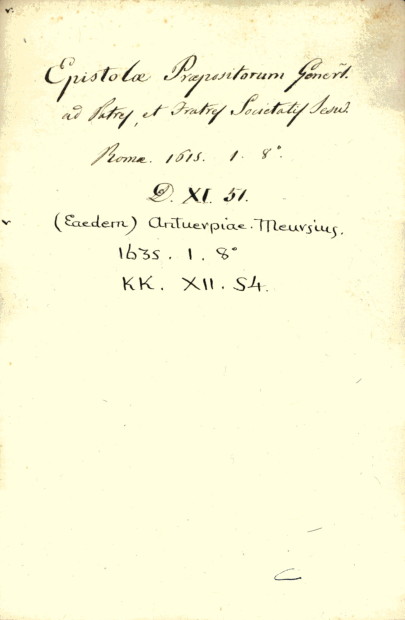 Epistolæ Præpositorum Genẽrl.
ad Patres, et Fratres Societatis Iesu.
Romæ. 1615. 1. 8°.
D. XI. 51.
(Eaedem) Antuerpiae. Meursius.
1635. 1. 8°
KK. XII. 54.